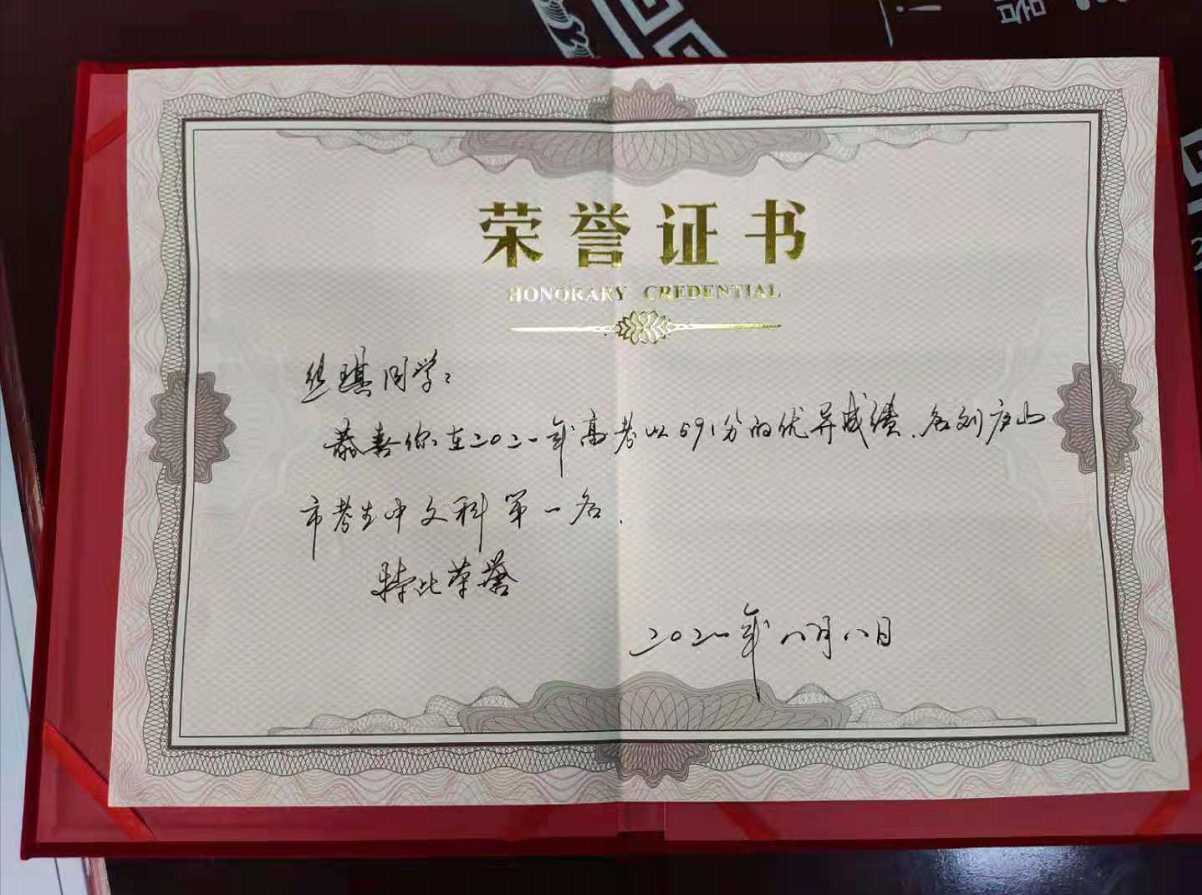 荣誉证书
HONORARY CREDENTIAL
丝琪同学:
恭喜你在2021年高考以591分的优异成绩、名列庐山
市考生中文科第一名.
特此荣誉
2021年八月八日